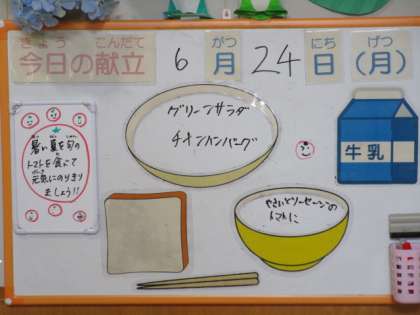 きょう こんだて がつ にち げつ
今日の献立 6月24日(月)
グリーンサラダ
チキンハンバーグ
牛乳
暑い夏を旬の
トマトを食べて
元気にのりきり
ましょう!!
やさいとソーセージの
トマトに